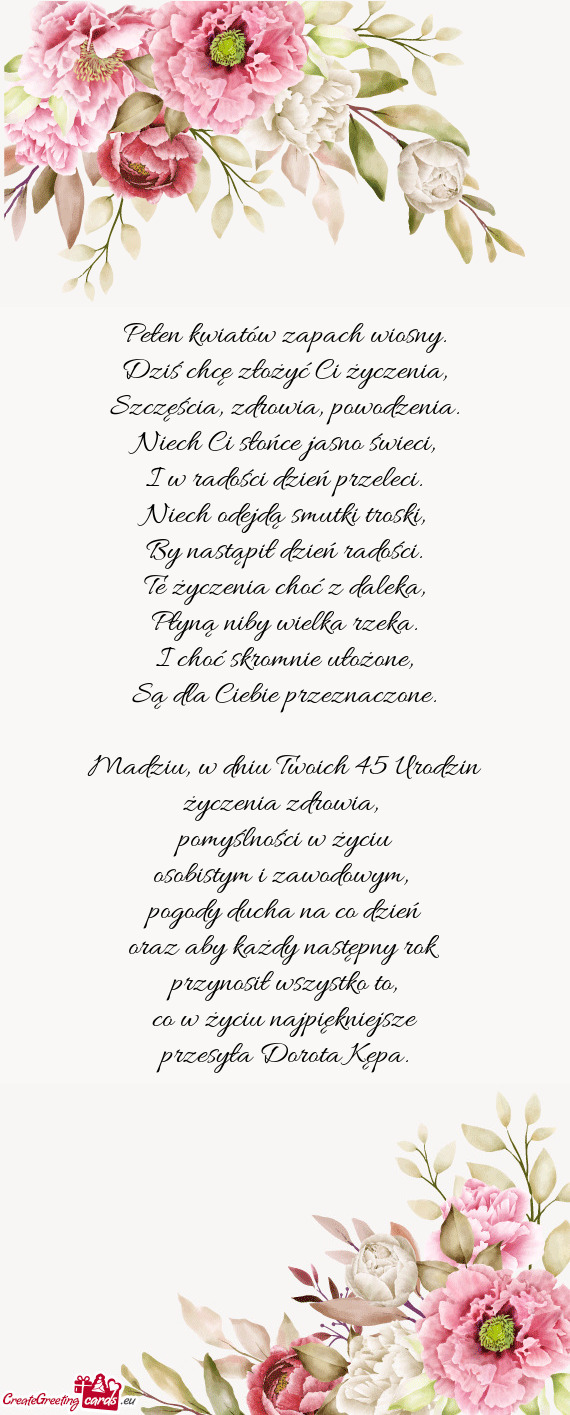 Pełen kwiatów zapach wiosny.
Dziś chcę złożyć Ci życzenia,
Szczęścia, zdrowia, powodzenia.
Niech Ci słońce jasno świeci,
I w radości dzień przeleci.
Niech odejdą smutki troski,
By nastąpił dzień radości.
Te życzenia choć z daleka,
Płyną niby wielka rzeka.
I choć skromnie ułożone,
Są dla Ciebie przeznaczone.
Madziu, w dniu Twoich 45 Urodzin
życzenia zdrowia,
pomyślności w życiu
osobistym i zawodowym,
pogody ducha na co dzień
oraz aby każdy następny rok
przynosił wszystko to,
co w życiu najpiękniejsze
przesyła Dorota Kępa.
CreateGreeting cards .eu